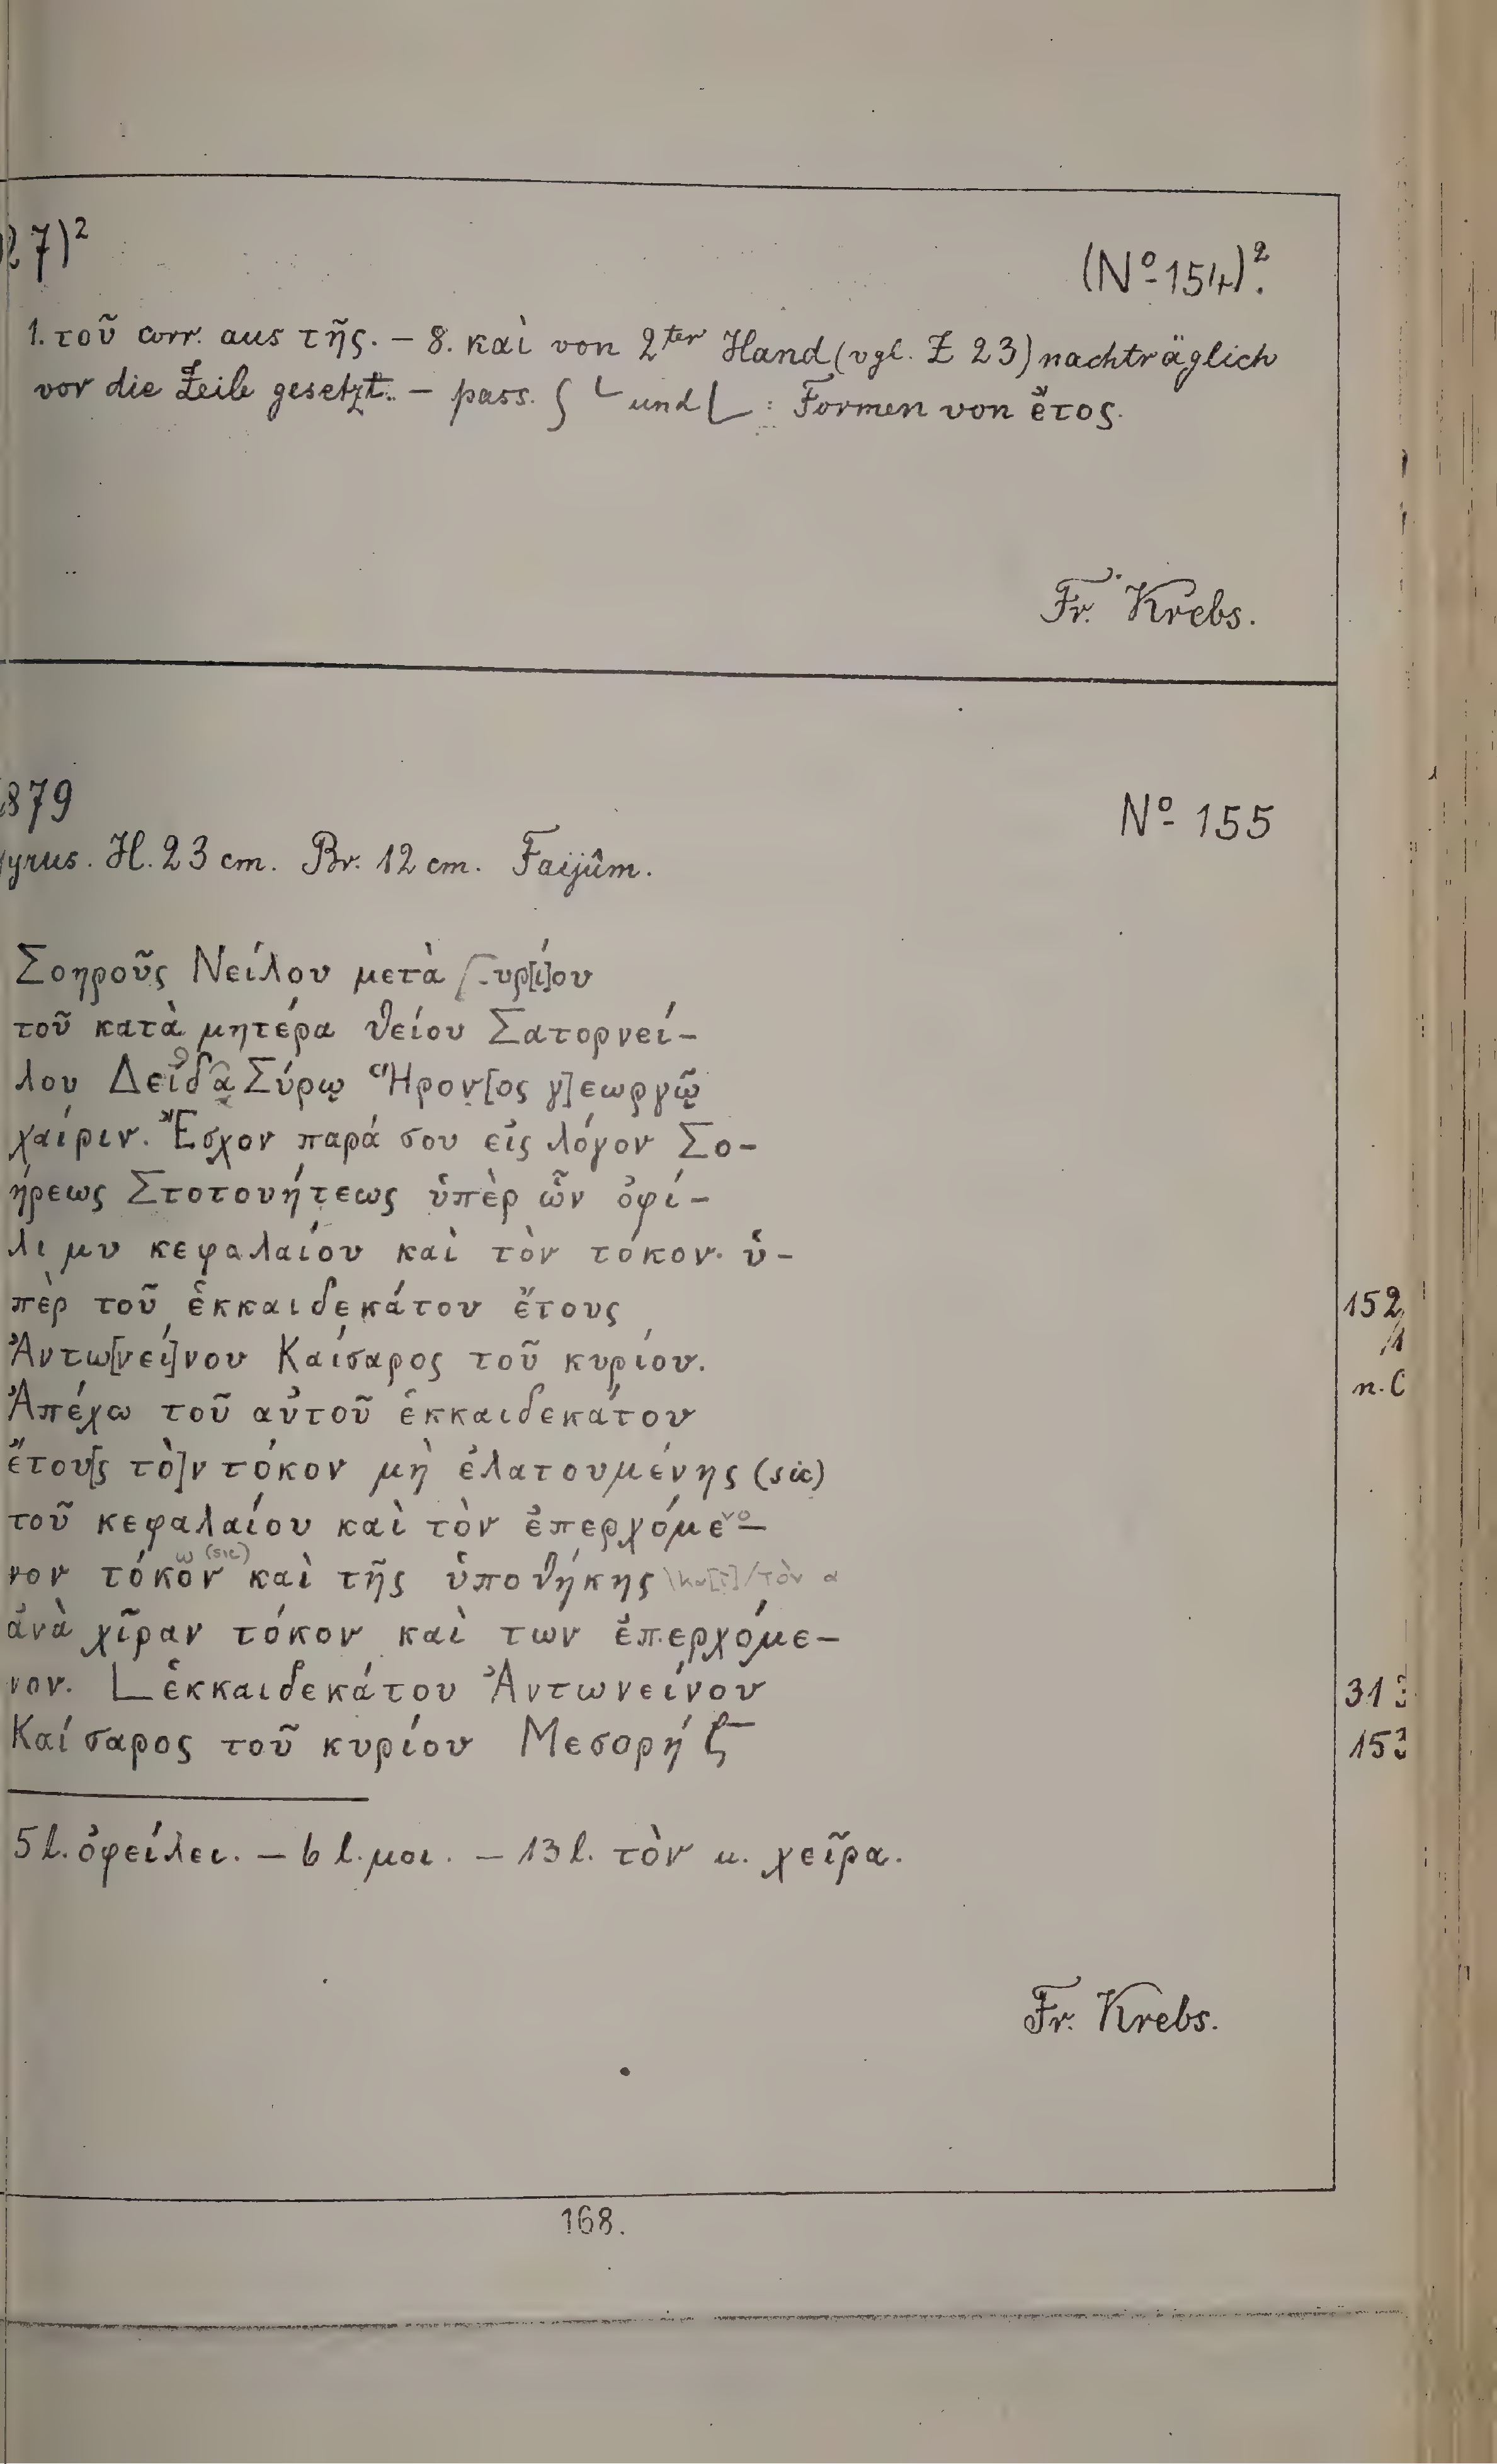 27)²
(Nº 154)².
1. τοῦ corr. aus τῆς. – 8. καὶ von 2ter Hand (vgl. Z 23) nachträglich
vor die Zeile gesetzt. – pass. ʃ └ und L : Formen von ἔτος.
Fr. Krebs.
879
Nº 155
yrus. H. 23 cm. Br. 12 cm. Faijûm.
Σοηροῦς Νείλου μετὰ υρ[ί]ου
τοῦ κατὰ μητέρα θείου Σατορνεί–
λου Δείδᾳ Σύρῳ Ἥρον[ος γ]εωργῷ
χαίριν. Ἔσχον παρά σου εἰς λόγον Σο–
ήρεως Στοτουήτεως ὑπὲρ ὧν ὀφί–
λι μυ κεφαλαίου καὶ τὸν τόκον· ὑ–
πὲρ τοῦ ἑκκαιδεκάτου ἔτους
152
Ἀντω[νεί]νου Καίσαρος τοῦ κυρίου.
n. C
Ἀπέχω τοῦ αὐτοῦ ἑκκαιδεκάτου
ἔτου[ς τὸ]ν τόκον μὴ ἐλατουμένης (sic)
τοῦ κεφαλαίου καὶ τὸν ἐπερχόμε–
νο
νον τόκον καὶ τῆς ὑποθήκης \κα[ὶ]/ τὸν α
ω (sic)
ἀνὰ χῖραν τόκον καὶ των ἐπερχόμε–
νον. L ἑκκαιδεκάτου Ἀντωνείνου
31
Καίσαρος τοῦ κυρίου Μεσορή ζ̅
153
5 l. ὀφείλει. – 6 l. μοι. – 13 l. τὸν u. χεῖρα.
Fr. Krebs.
168.